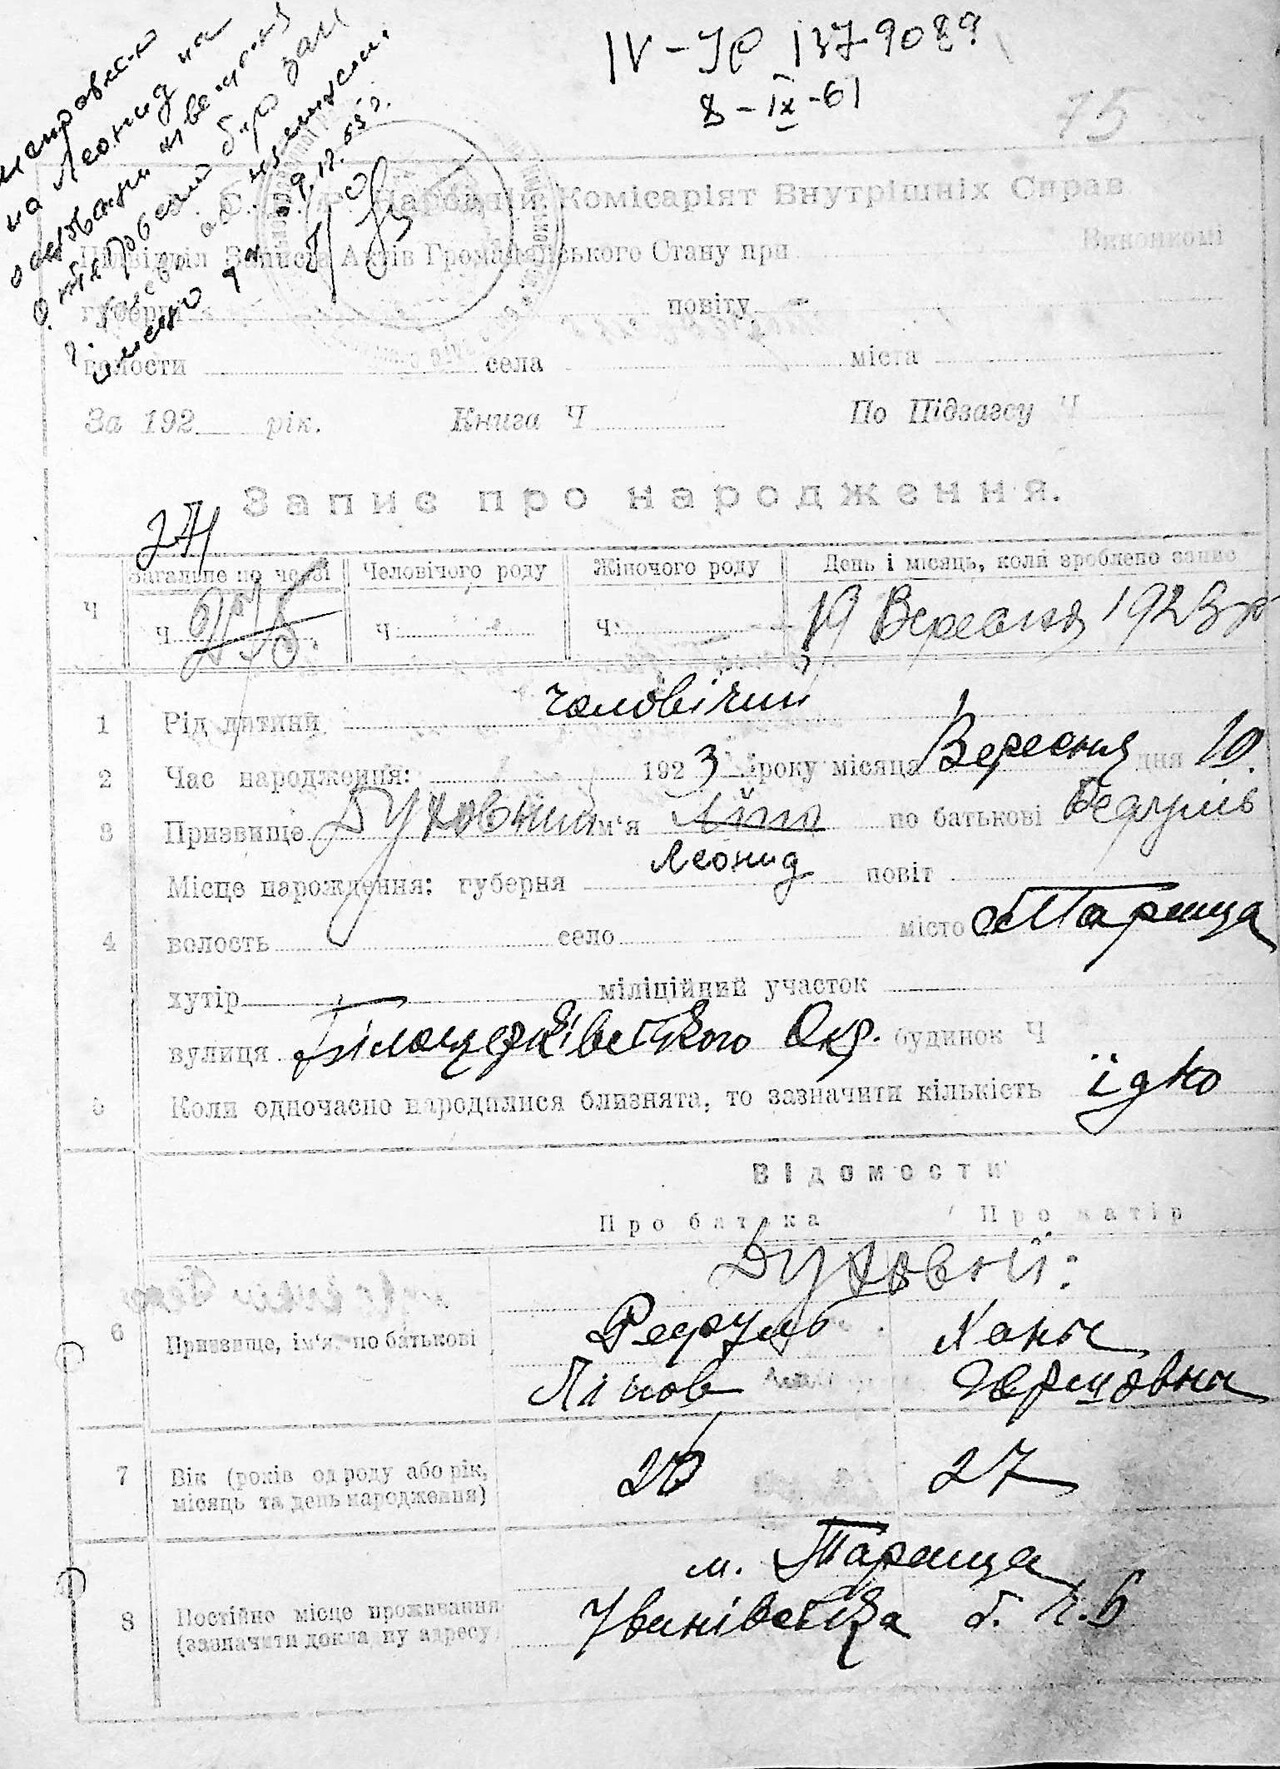 IV-ЈР 1379089
8-IX-61
75
исправлено
на Леонид на
основании
9.12.53 г.
Народній Комісаріят Внутрішніх Справ
Підвідділ Записів Актів Громадянського Стану при Виконкомі
губерні повіту
волости села міста
За 192 рік. Книга Ч По Підзагсу Ч
Запис про народження.
271
Загальне по черзі Человічого роду Жіночого роду День і місяць, коли зроблено запис
Ч Ч 275 Ч Ч 19 Вересня 1923 р
1 Рід дитини чоловічий
2 Час народження: 1923 року місяця Вересня дня 10.
3 Призвище Духовний ім'я Ліпа по батькові
Леонид
Місце народження: губерня повіт
4 волость село місто Тараща
хутір міліційний участок
вулиця Білоцерківського Окр. будинок Ч
5 Коли одночасно народилися близнята, то зазначити кількість їдно
Відомости
Про батька Про матір
Духовні:
6 Призвище, ім'я, по батькові Рефуль Хана
Ліпов Гершовна
7 Вік (років од роду або рік, 26 27
місяць та день народження)
м. Тараща
8 Постійне місце проживання Іванівська б. ч. 6
(зазначити докладну адресу)